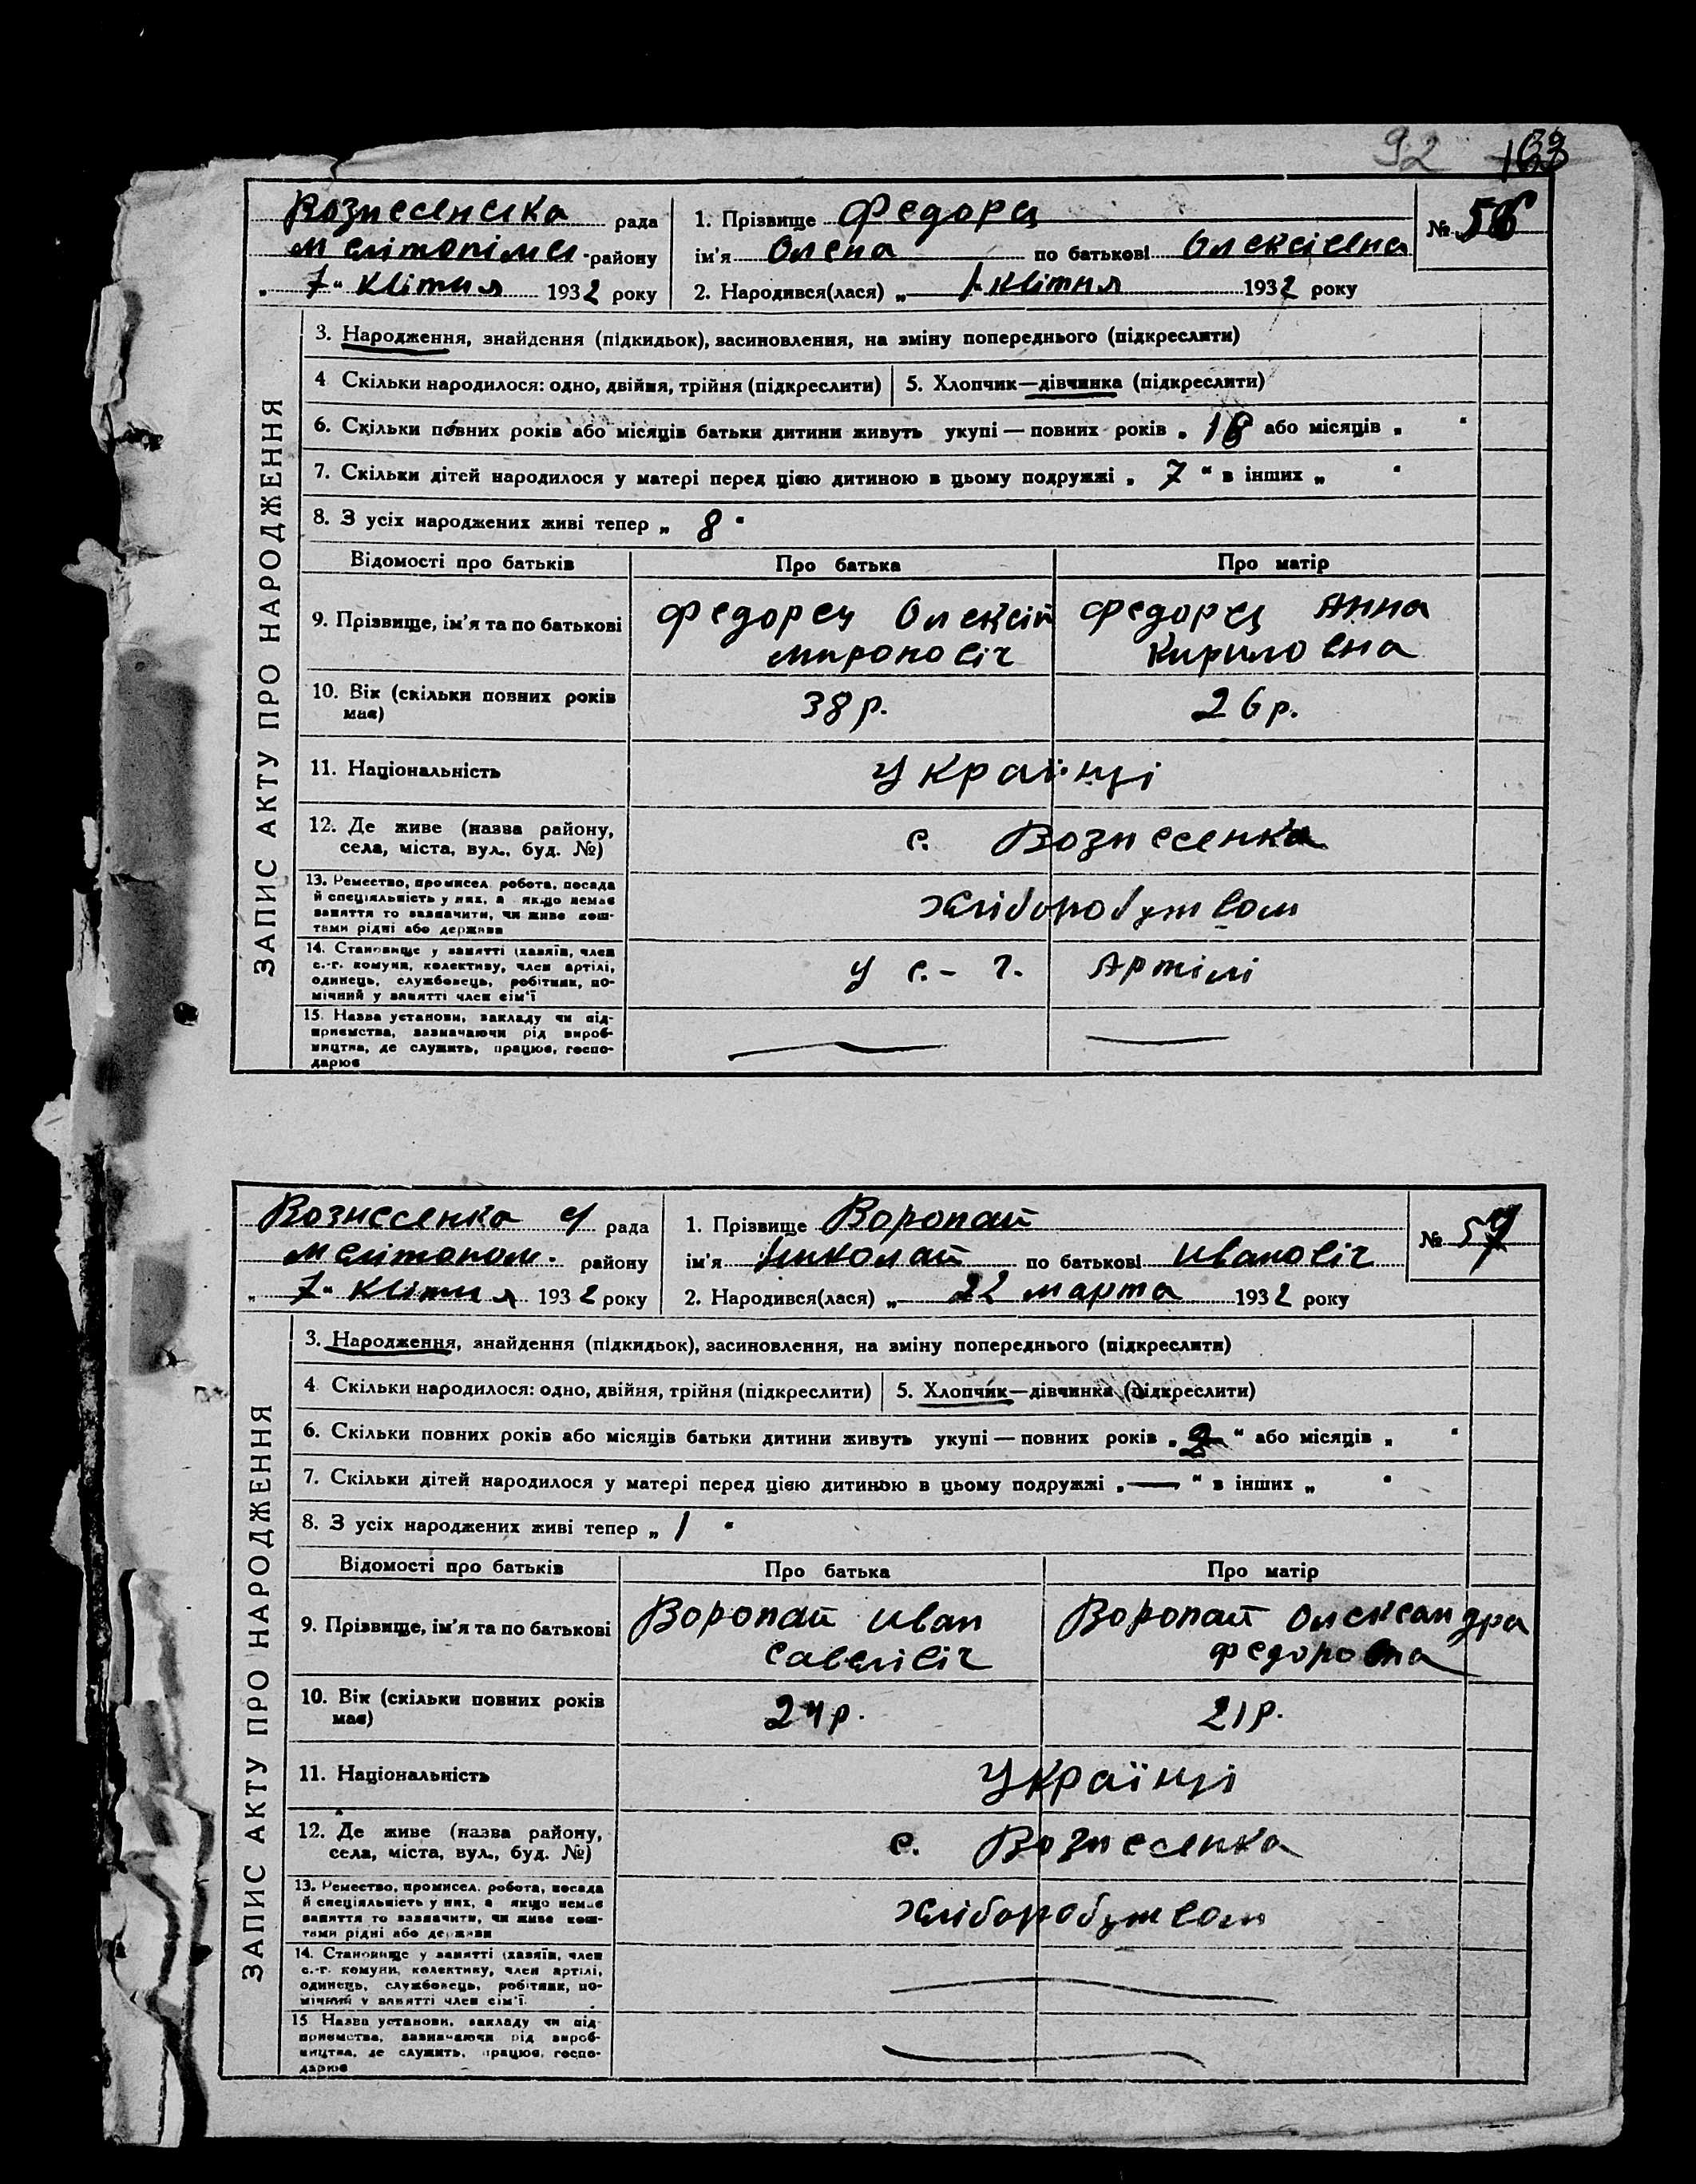 92
Вознесенська рада
1. Прізвище Федорец
№ 56
Мелітопільск. району
ім'я Олена по батькові Олексієвна
„ 7 " Квітня 1932 року
2. Народився(лася) „ 1 Квітня 1932 року
ЗАПИС АКТУ ПРО НАРОДЖЕННЯ
3. Народження, знайдення (підкидьок), засиновлення, на зміну попереднього (підкреслити)
4 Скільки народилося: одно, двійня, трійня (підкреслити)
5. Хлопчик—дівчинка (підкреслити)
6. Скільки повних років або місяців батьки дитини живуть укупі — повних років „ або місяців „ "
7. Скільки дітей народилося у матері перед цією дитиною в цьому подружжі „ 7 " в інших „ "
8. З усіх народжених живі тепер „ 8 "
Відомості про батьків Про батька Про матір
9. Прізвище, ім'я та по батькові
Федорец Олексій
Миронович
Федорец Анна
Кириловна
10. Вік (скільки повних років
має)
38 р. 26 р.
11. Національність Українці
12. Де живе (назва району,
села, міста, вул., буд. №)
с. Вознесенка
13. Ремество, промисел, робота, посада
й спеціяльність у них, а якщо немає
заняття то зазначити, чи живе кош-
тами рідні або держави
хліборобутвом
14. Становище у занятті (хазяїн, член
с.-г. комуни, колективу, член артілі,
одинець, службовець, робітник, по-
мічний у занятті член сім'ї
у с.-г. Артілі
15. Назва установи, закладу чи під-
приємства, зазначаючи рід вироб-
ництва, де служить, працює, госпо-
дарює
Вознесенка рада
1. Прізвище Воропай
№ 57
Мелітопол. району
ім'я Николай по батькові Иванович
„ 7 " Квітня 1932 року
2. Народився(лася) „ 22 марта 1932 року
ЗАПИС АКТУ ПРО НАРОДЖЕННЯ
3. Народження, знайдення (підкидьок), засиновлення, на зміну попереднього (підкреслити)
4 Скільки народилося: одно, двійня, трійня (підкреслити)
5. Хлопчик—дівчинка (підкреслити)
6. Скільки повних років або місяців батьки дитини живуть укупі — повних років „ 2 " або місяців „ "
7. Скільки дітей народилося у матері перед цією дитиною в цьому подружжі „ — " в інших „ "
8. З усіх народжених живі тепер „ 1 "
Відомості про батьків Про батька Про матір
9. Прізвище, ім'я та по батькові
Воропай Иван
Савеливіч
Воропай Олександра
Федоровна
10. Вік (скільки повних років
має)
24 р. 21 р.
11. Національність Українці
12. Де живе (назва району,
села, міста, вул., буд. №)
с. Вознесенка
13. Ремество, промисел, робота, посада
й спеціяльність у них, а якщо немає
заняття то зазначити, чи живе кош-
тами рідні або держави
хліборобутвом
14. Становище у занятті (хазяїн, член
с.-г. комуни, колективу, член артілі,
одинець, службовець, робітник, по-
мічний у занятті член сім'ї
15 Назва установи, закладу чи під-
приємства, зазначаючи рід вироб-
ництва, де служить, працює, госпо-
дарює